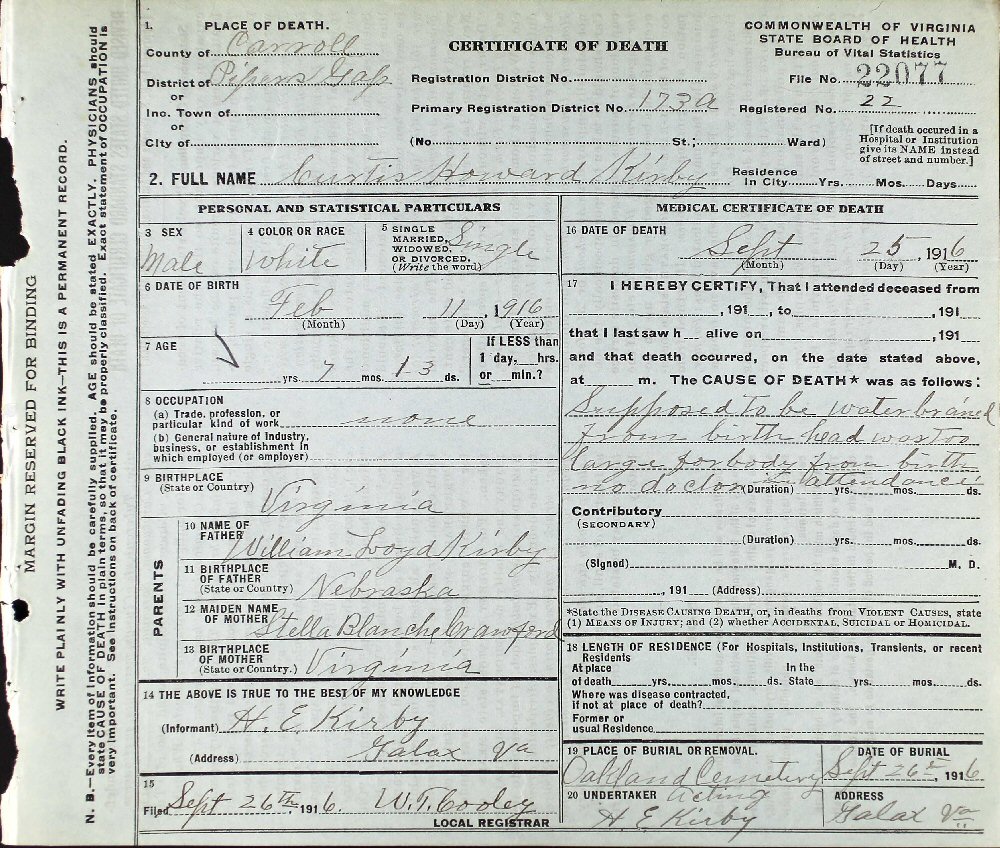 1. PLACE OF DEATH.
County of Carroll
District of Pipers Gap
or
Inc. Town of
or
City of
CERTIFICATE OF DEATH
Registration District No.
Primary Registration District No. 173a
(No. St.; Ward)
COMMONWEALTH OF VIRGINIA
STATE BOARD OF HEALTH
Bureau of Vital Statistics
File No. 22077
Registered No. 22
[If death occured in a
Hospital or Institution
give its NAME instead
of street and number.]
2. FULL NAME Curtis Howard Kirby
Residence
In City Yrs. Mos. Days
PERSONAL AND STATISTICAL PARTICULARS
3 SEX
Male
4 COLOR OR RACE
White
5 SINGLE
MARRIED,
WIDOWED,
OR DIVORCED.
(Write the word)
Single
6 DATE OF BIRTH
Feb 11, 1916
(Month) (Day) (Year)
7 AGE
yrs. 7 mos. 13 ds.
If LESS than
1 day, hrs.
or min.?
8 OCCUPATION
(a) Trade, profession, or
particular kind of work none
(b) General nature of Industry,
business, or establishment in
which employed (or employer)
9 BIRTHPLACE
(State or Country)
Virginia
PARENTS
10 NAME OF
FATHER
William Loyd Kirby
11 BIRTHPLACE
OF FATHER
(State or Country) Nebraska
12 MAIDEN NAME
OF MOTHER
Stella Blanche Crawford
13 BIRTHPLACE
OF MOTHER
(State or Country.) Virginia
14 THE ABOVE IS TRUE TO THE BEST OF MY KNOWLEDGE
(Informant) H. E. Kirby
(Address) Galax Va
15
Filed Sept 26th, 1916. W. T. Cooley
LOCAL REGISTRAR
MEDICAL CERTIFICATE OF DEATH
16 DATE OF DEATH
Sept 25, 1916
(Month) (Day) (Year)
17 I HEREBY CERTIFY, That I attended deceased from
, 191 , to , 191
that I last saw h alive on , 191
and that death occurred, on the date stated above,
at m. The CAUSE OF DEATH* was as follows:
Supposed to be water brained
from birth head was too
large for body from birth
no doctor in attendance
(Duration) yrs. mos. ds.
Contributory
(SECONDARY)
(Duration) yrs. mos. ds.
(Signed) M. D.
, 191 (Address)
*State the DISEASE CAUSING DEATH, or, in deaths from VIOLENT CAUSES, state
(1) MEANS OF INJURY; and (2) whether ACCIDENTAL, SUICIDAL OR HOMICIDAL.
18 LENGTH OF RESIDENCE (For Hospitals, Institutions, Transients, or recent
Residents
At place In the
of death yrs. mos. ds. State yrs. mos. ds.
Where was disease contracted,
if not at place of death?
Former or
usual Residence
19 PLACE OF BURIAL OR REMOVAL.
Oakland Cemetery
DATE OF BURIAL
Sept 26th, 1916
20 UNDERTAKER acting
H. E. Kirby
ADDRESS
Galax Va
MARGIN RESERVED FOR BINDING
WRITE PLAINLY WITH UNFADING BLACK INK—THIS IS A PERMANENT RECORD.
N. B.—Every item of information should be carefully supplied. AGE should be stated EXACTLY. PHYSICIANS should
state CAUSE OF DEATH in plain terms, so that it may be properly classified. Exact statement of OCCUPATION is
very important. See instructions on back of certificate.